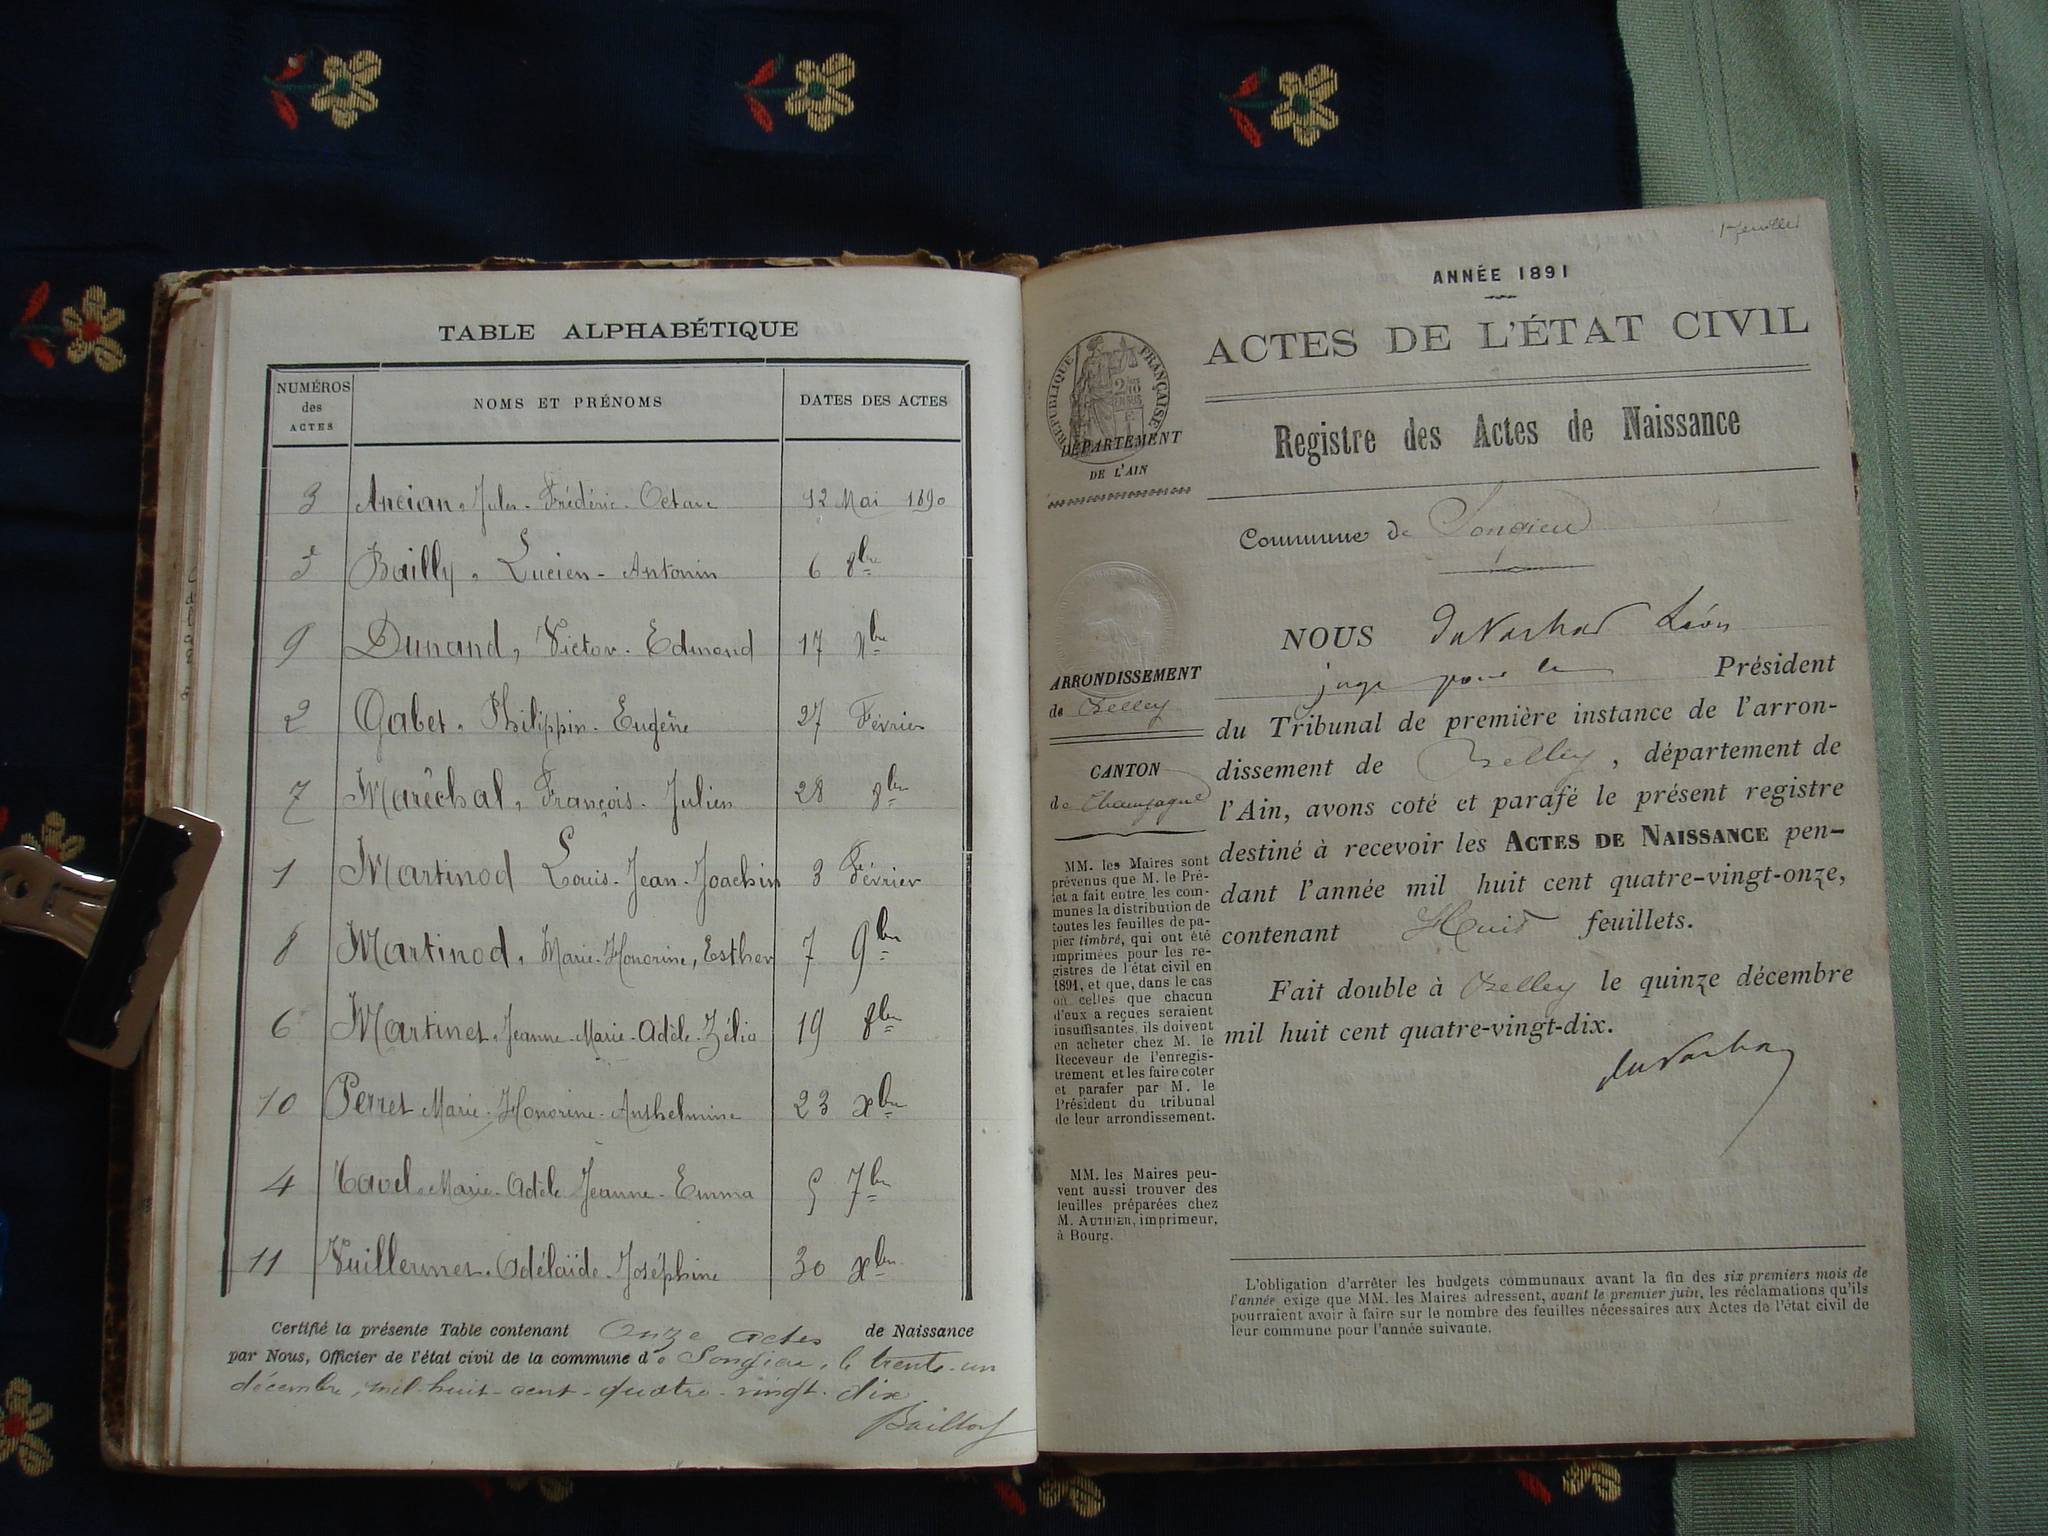 TABLE ALPHABÉTIQUE
NUMÉROS des ACTES NOMS ET PRÉNOMS DATES DES ACTES
3 Ancian, Jules-Frédéric-Octave 12 Mai 1890
5 Bailly, Lucien-Antonin 6 8bre
9 Dunand, Victor-Edmond 17 Xbre
2 Gabet, Philippin-Eugène 27 Février
7 Maréchal, François-Julien 28 8bre
1 Martinod Louis-Jean-Joachin 3 Février
8 Martinod, Marie-Honorine, Esther 7 9bre
6 Martinet, Jeanne-Marie-Adèle-Zélia 19 8bre
10 Perret Marie-Honorine-Anthelmine 23 Xbre
4 Tavel, Marie-Adèle Jeanne-Emma 5 7bre
11 Vuillermet, Adélaïde-Joséphine 30 Xbre
Certifié la présente Table contenant Onze actes de Naissance
par Nous, Officier de l'état civil de la commune de Songieu, le trente-un
décembre, mil-huit-cent-quatre-vingt-dix
ANNÉE 1891
ACTES DE L'ÉTAT CIVIL
RÉPUBLIQUE FRANÇAISE
DÉPARTEMENT
DE L'AIN
Registre des Actes de Naissance
Commune de Songieu
NOUS Léon
juge pour le Président
du Tribunal de première instance de l'arron-
dissement de Belley, département de
l'Ain, avons coté et parafé le présent registre
destiné à recevoir les ACTES DE NAISSANCE pen-
dant l'année mil huit cent quatre-vingt-onze,
contenant Huit feuillets.
Fait double à Belley le quinze décembre
mil huit cent quatre-vingt-dix.
ARRONDISSEMENT
de Belley
CANTON
de Champagne
MM. les Maires sont
prévenus que M. le Pré-
fet a fait entre les com-
munes la distribution de
toutes les feuilles de pa-
pier timbré, qui ont été
imprimées pour les re-
gistres de l'état civil en
1891, et que, dans le cas
où celles que chacun
d'eux a reçues seraient
insuffisantes, ils doivent
en acheter chez M. le
Receveur de l'enregis-
trement et les faire coter
et parafer par M. le
Président du tribunal
de leur arrondissement.
MM. les Maires peu-
vent aussi trouver des
feuilles préparées chez
M. AUTHIER, imprimeur,
à Bourg.
L'obligation d'arrêter les budgets communaux avant la fin des six premiers mois de
l'année exige que MM. les Maires adressent, avant le premier juin, les réclamations qu'ils
pourraient avoir à faire sur le nombre des feuilles nécessaires aux Actes de l'état civil de
leur commune pour l'année suivante.